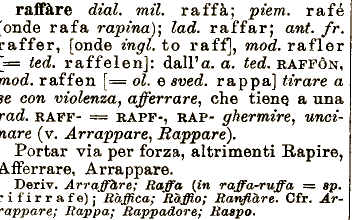 raffàre dial. mil. raffà; piem. rafé
(onde rafa rapina); lad. raffar; ant. fr.
raffer, [onde ingl. to raff], mod. rafler
[= ted. raffelen]: dall'a. a. ted. RAFFÔN,
mod. raffen [= ol. e sved. rappa] tirare a
se con violenza, afferrare, che tiene a una
rad. RAFF- = RAPF-, RAP- ghermire, unci-
nare (v. Arrappare, Rappare).
Portar via per forza, altrimenti Rapire,
Afferrare, Arrappare.
Deriv. Arraffàre; Raffa (in raffa-ruffa = sp.
rifirrafe); Ràffica; Ràffio; Ranfiàre. Cfr. Ar-
rappare; Rappa; Rappadore; Raspo.